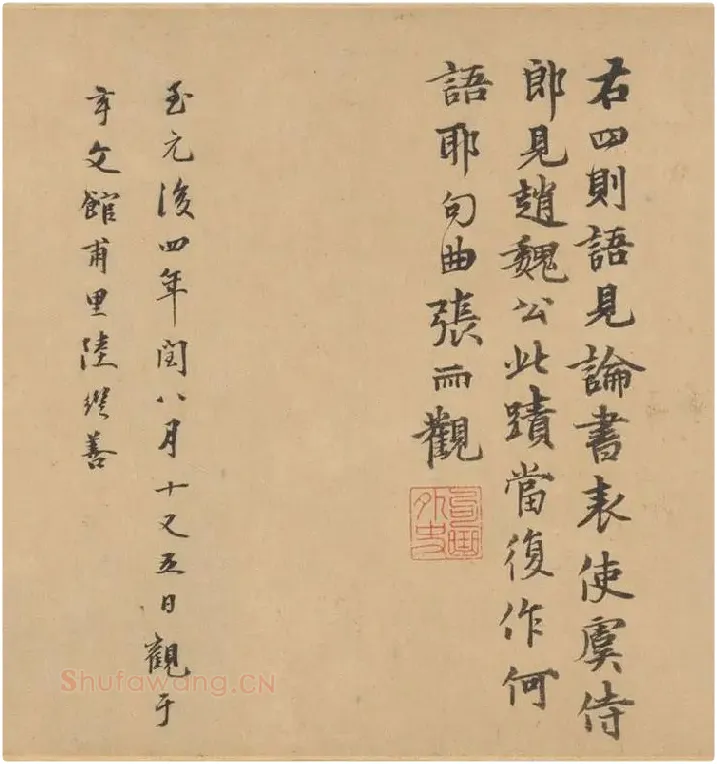 右四則語見論書表使虞侍
郎見趙魏公此蹟當復作何
語耶句曲張雨觀
句曲外史
至元後四年閏八月十又五日觀于
宇文館甫里陸繼善
Shufawang.CN